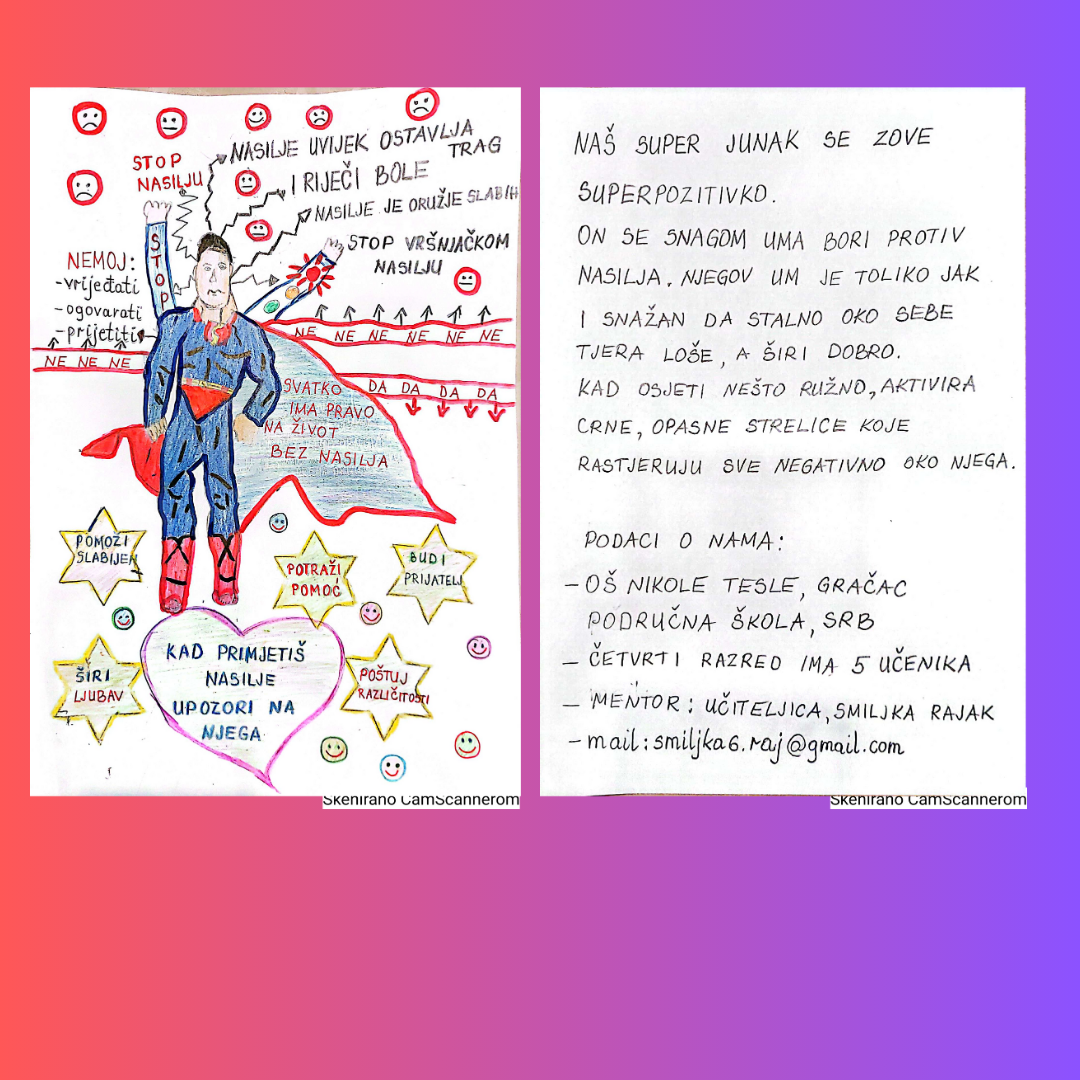 STOP
NASILJU
NASILJE UVIJEK OSTAVLJA
TRAG
I RIJEČI BOLE
NASILJE JE ORUŽJE SLABIH
STOP VRŠNJAČKOM
NASILJU
STOP
NEMOJ:
-vrijeđati
-ogovarati
-prijetiti
NE NE NE
NE NE NE NE NE
DA DA DA DA
SVATKO
IMA PRAVO
NA ŽIVOT
BEZ NASILJA
POMOZI
SLABIJEM
POTRAŽI
POMOĆ
BUDI
PRIJATELJ
ŠIRI
LJUBAV
KAD PRIMJETIŠ
NASILJE
UPOZORI NA
NJEGA
POŠTUJ
RAZLIČITOSTI
Skenirano CamScannerom
NAŠ SUPER JUNAK SE ZOVE
SUPERPOZITIVKO.
ON SE SNAGOM UMA BORI PROTIV
NASILJA. NJEGOV UM JE TOLIKO JAK
I SNAŽAN DA STALNO OKO SEBE
TJERA LOŠE, A ŠIRI DOBRO.
KAD OSJETI NEŠTO RUŽNO, AKTIVIRA
CRNE, OPASNE STRELICE KOJE
RASTJERUJU SVE NEGATIVNO OKO NJEGA.
PODACI O NAMA:
- OŠ NIKOLE TESLE, GRAČAC
PODRUČNA ŠKOLA, SRB
- ČETVRTI RAZRED IMA 5 UČENIKA
- MENTOR: UČITELJICA, SMILJKA RAJAK
- mail: smiljka6.raj@gmail.com
Skenirano CamScannerom